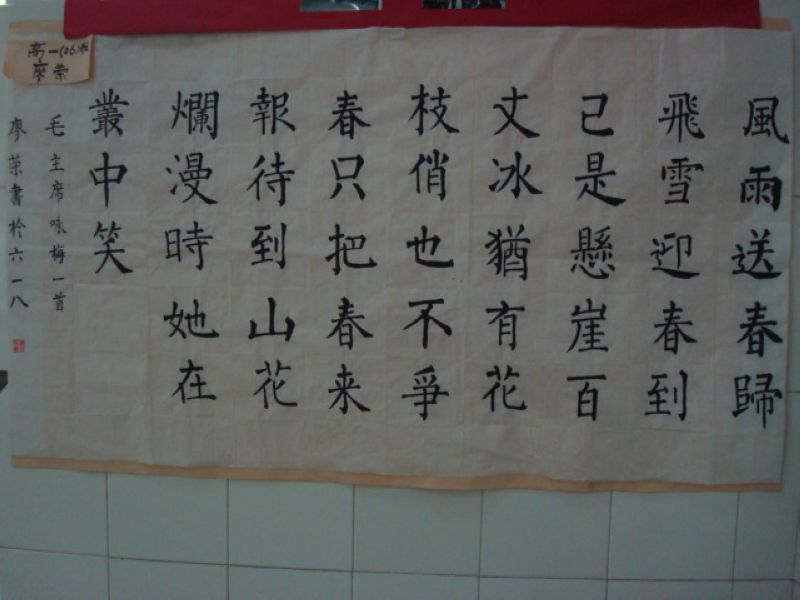 風雨送春歸
飛雪迎春到
己是懸崖百
丈冰猶有花
枝俏也不爭
春只把春来
報待到山花
爛漫時她在
叢中笑
毛主席咏梅一首
廖荣書於六一八
高一(26)班
廖荣